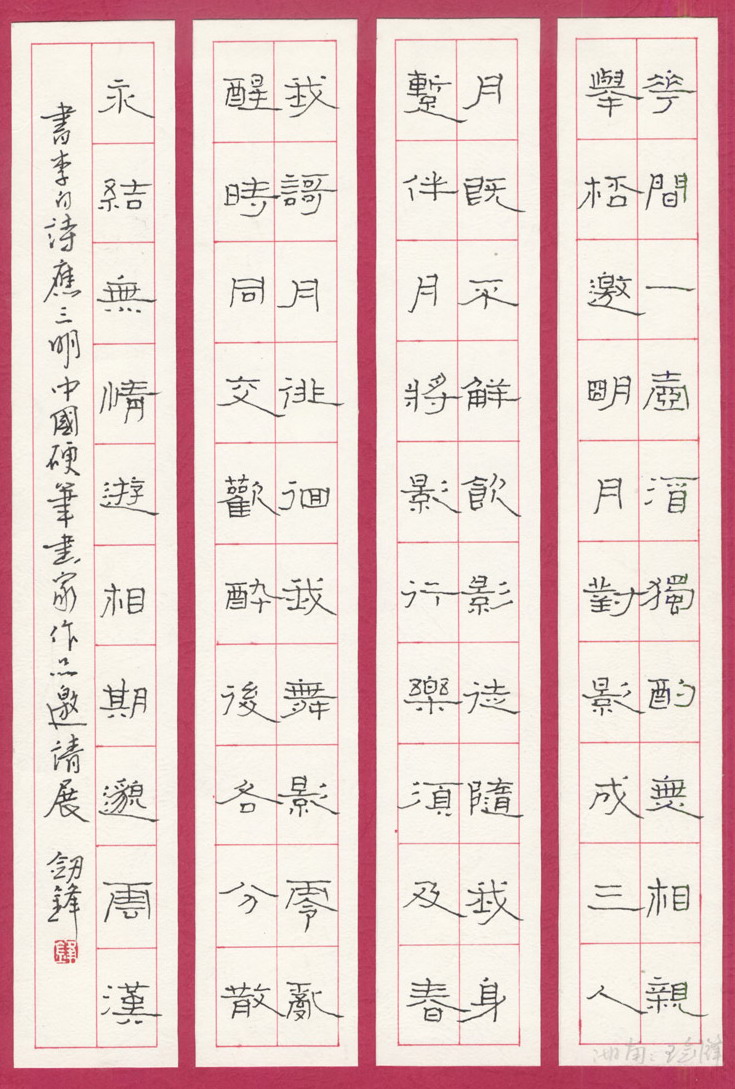 花間一壺酒獨酌無相親
舉桮邀明月對影成三人
月既不解飲影徒隨我身
蹔伴月將影行樂須及春
我謌月徘徊我舞影零亂
醒時同交歡醉後各分散
永結無情遊相期邈雲漢
書李白詩應三明中國硬筆書家作品邀請展 劍鋒
鋒
湖南:王剑锋